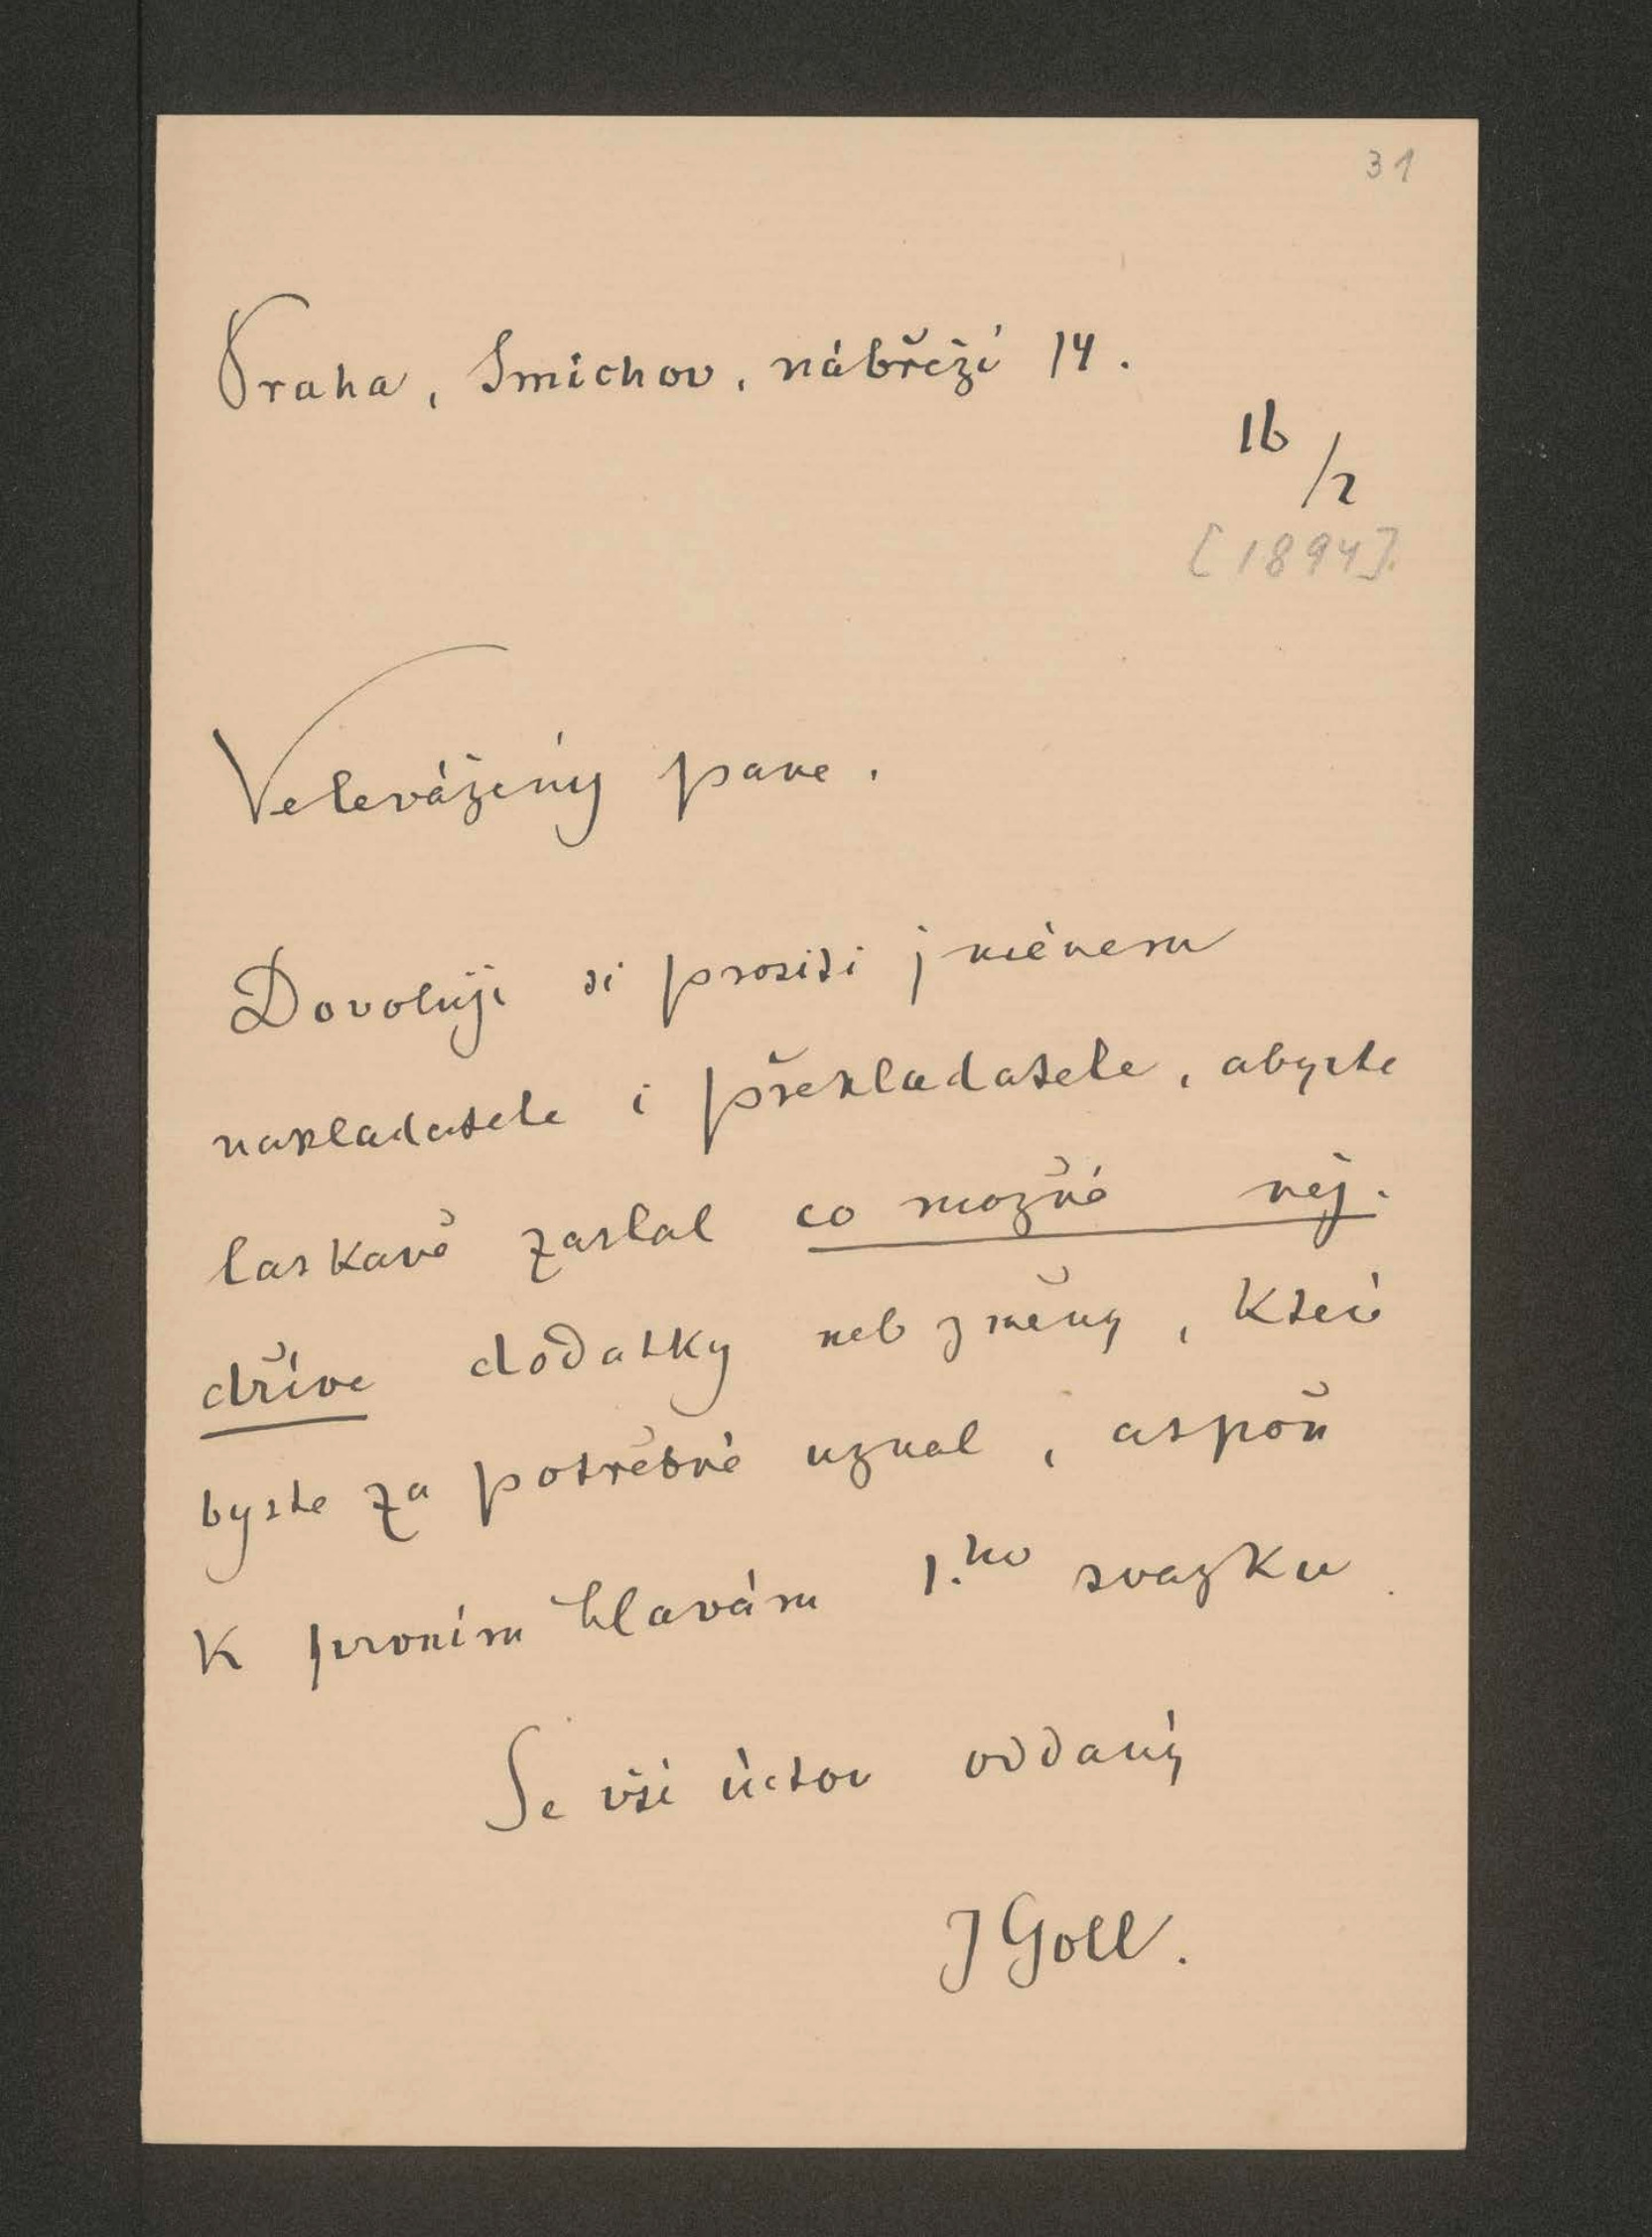 31
Praha, Smíchov, nábřeží 14.
16/2
[1894].
Velevážený pane.
Dovoluji si prositi jménem
nakladatele i překladatele, abyste
laskavě zaslal co možně nej-
dříve dodatky neb změny, kteé
byste za potřebné uznal, aspoň
k prvním hlavám 1.ho svazku.
Se vší úctou oddaný
J Goll.